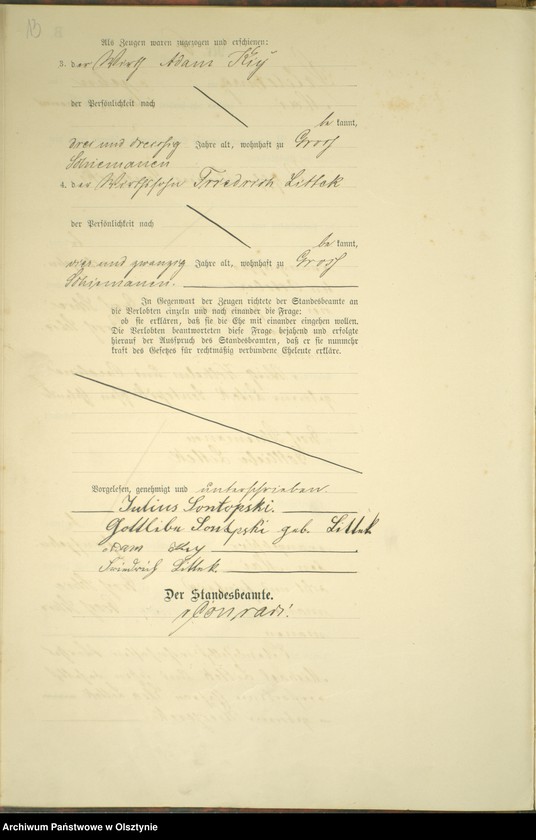 13
Als Zeugen waren zugezogen und erschienen:
3. der Wirth Adam Key
der Persönlichkeit nach
be kannt,
drei und dreissig Jahre alt, wohnhaft zu Gross
Schiemanen
4. der Wirthssohn Friedrich Littek
der Persönlichkeit nach
be kannt,
vier und zwanzig Jahre alt, wohnhaft zu Gross
Schiemanen.
In Gegenwart der Zeugen richtete der Standesbeamte an
die Verlobten einzeln und nach einander die Frage:
ob sie erklären, daß sie die Ehe mit einander eingehen wollen.
Die Verlobten beantworteten diese Frage bejahend und erfolgte
hierauf der Ausspruch des Standesbeamten, daß er sie nunmehr
kraft des Gesetzes für rechtmäßig verbundene Eheleute erkläre.
Vorgelesen, genehmigt und unterschrieben.
Julius Sontopski.
Gottliebe Sontopski geb. Littek
Adam Key
Friedrich Littek
Der Standesbeamte.
Conradi.
Archiwum Państwowe w Olsztynie